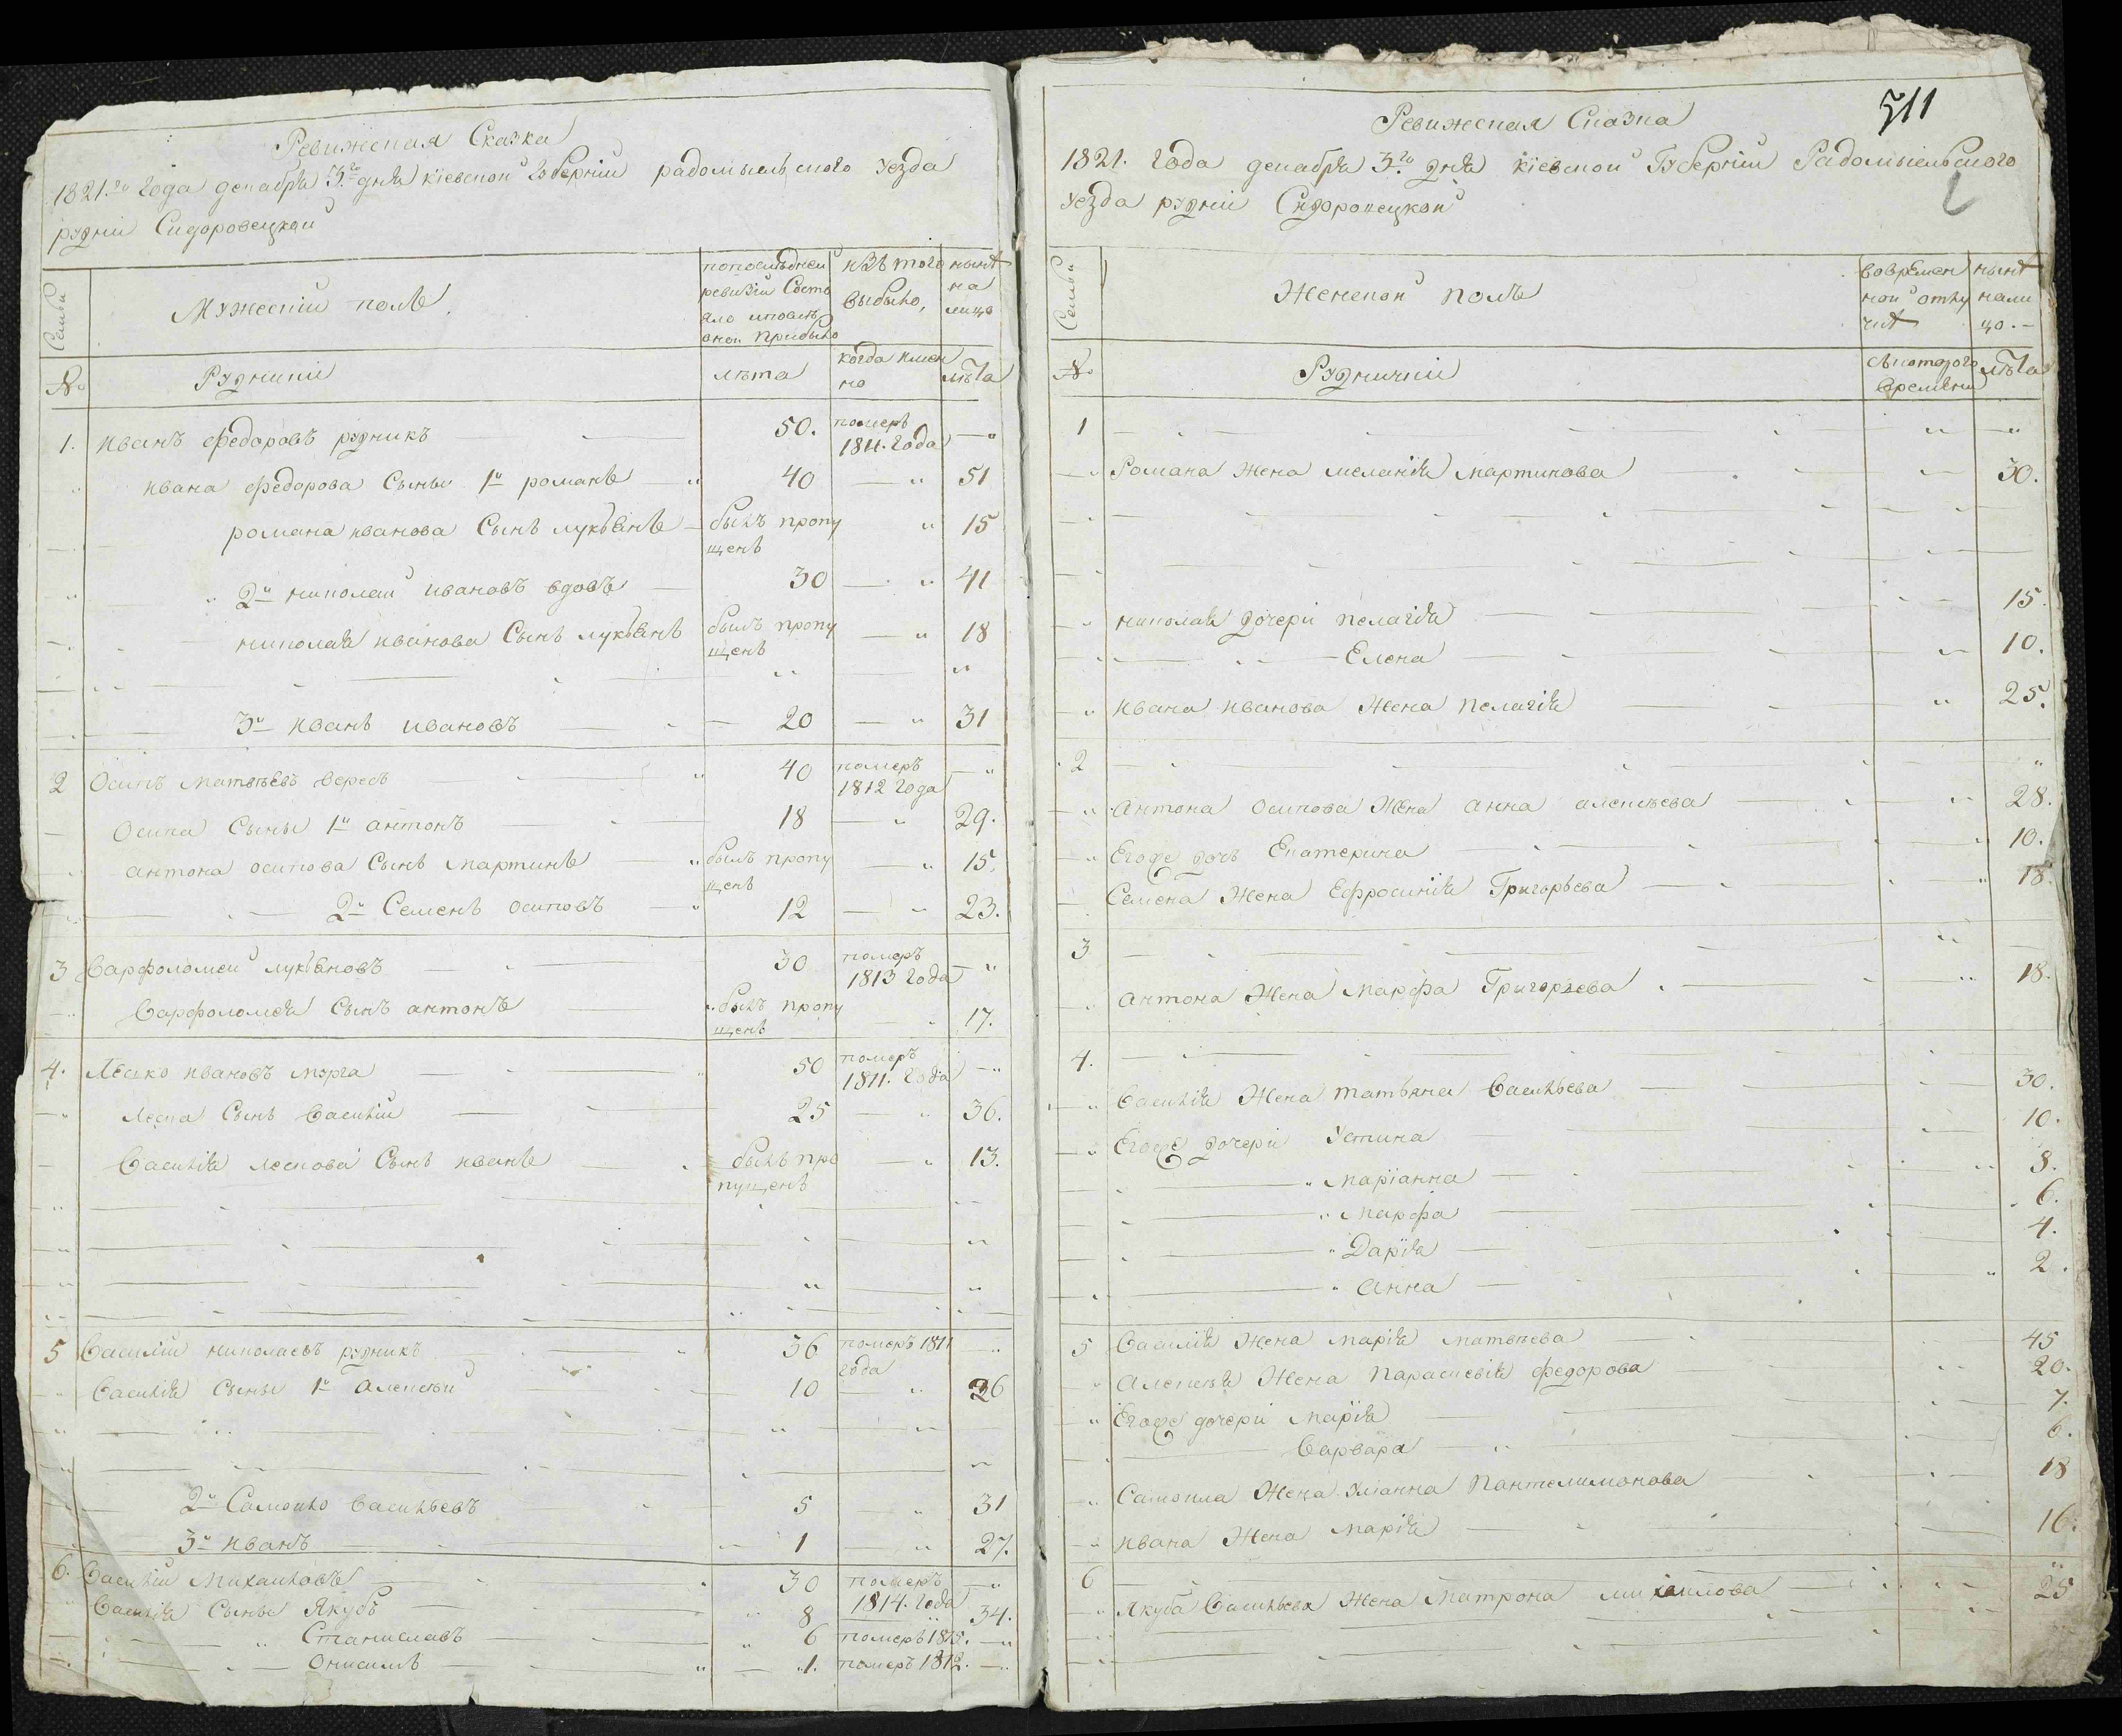 Ревижская Сказка
1821.го Года декабря 3.го дня кіевской Губерніи радомысльского уезда
рудни Сидоровецкой
Семьи
Мужескій полъ.
попоследней ревизіи Состояло ипослѣ оной прибыло
изъ того выбыло,
нынѣ на лицо
№
Рудники
лѣта
когда имен но
лѣта
1. иванъ федоровъ рудникъ 50. померъ 1811. Года — "
ивана федорова Сыны 1й романъ 40 — " 51
романа иванова Сынъ лукъянъ былъ пропущенъ " 15
2й николай ивановъ вдовъ 30 — " 41
николая иванова Сынъ лукъянъ былъ пропущенъ — " 18
3й иванъ ивановъ 20 — " 31
2 Осипъ матвѣевъ вересъ 40 померъ 1812 Года — "
Осипа Сыны 1й антонъ 18 — " 29.
антона осипова Сынъ мартинъ былъ пропущенъ — " 15.
2й Семенъ осиповъ 12 — " 23.
3 Варфоломей лукъяновъ 30 померъ 1813 Года — "
Варфоломея Сынъ антонъ былъ пропущенъ — " 17.
4. Леско ивановъ мурга 50 померъ 1811. Года — "
леска Сынъ Василій 25 — " 36.
Василія лескова Сынъ иванъ былъ пропущенъ — " 13.
5 Василій николаевъ рудникъ 56 померъ 1811 года — "
Василія Сыны 1й алексѣй 10 — " 26
2й Самойло Васильевъ 5 — " 31
3й иванъ 1 — " 27.
6. Василій михайловъ 30 померъ 1814. Года — "
Василія Сыны Якубъ 8 — " 34.
Станиславъ 6 померъ 1815. — "
Онисимъ 1. померъ 1812. — "
511
Ревижская Сказка
1821. Года декабря 3.го дня кіевской Губерніи Радомысльского
уезда рудни Сидоровецкой
Семьи
Женской полъ
вовремен ной отлу чкѣ
нынѣ нали цо. —
№
Руднички
скотораго времени
лѣта
1
Романа Жена меланія мартинова 30.
николая дочери пелагія 15.
Елена 10.
ивана иванова Жена пелагія 25.
2
антона осипова Жена анна алексѣева 28.
Егоже дочь Екатерина 10.
Семена Жена Ефросинія Григорьева 18.
3
антона Жена марфа Григорьева 18.
4.
Василія Жена татьяна Васильева 30.
Егоже дочери Устина 10.
маріанна 8.
марфа 6.
Дарія 4.
анна 2.
5 Василія Жена марія матвѣева 45
алексѣя Жена параскевія федорова 20.
Егоже дочери марія 7.
Варвара 6.
Самойла Жена уліанна пантелимонова 18
ивана Жена марія 16.
6
Якуба Васильева Жена матрона михайлова 25